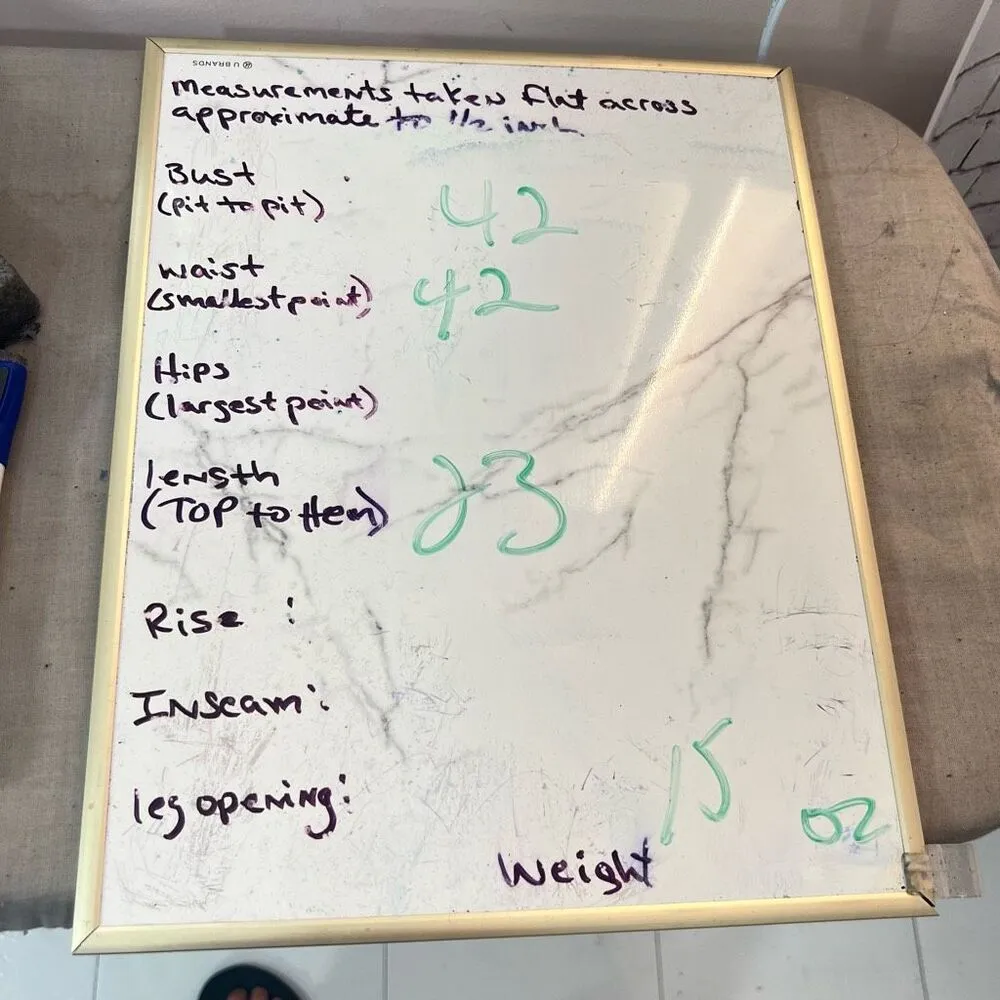 U BRANDS
Measurements taken flat across
approximate to 1/2 inch
Bust
(pit to pit)
42
waist
(smallest point)
42
Hips
(largest point)
length
(TOP to Hem)
23
Rise :
INSeam:
leg opening:
15
oz
Weight